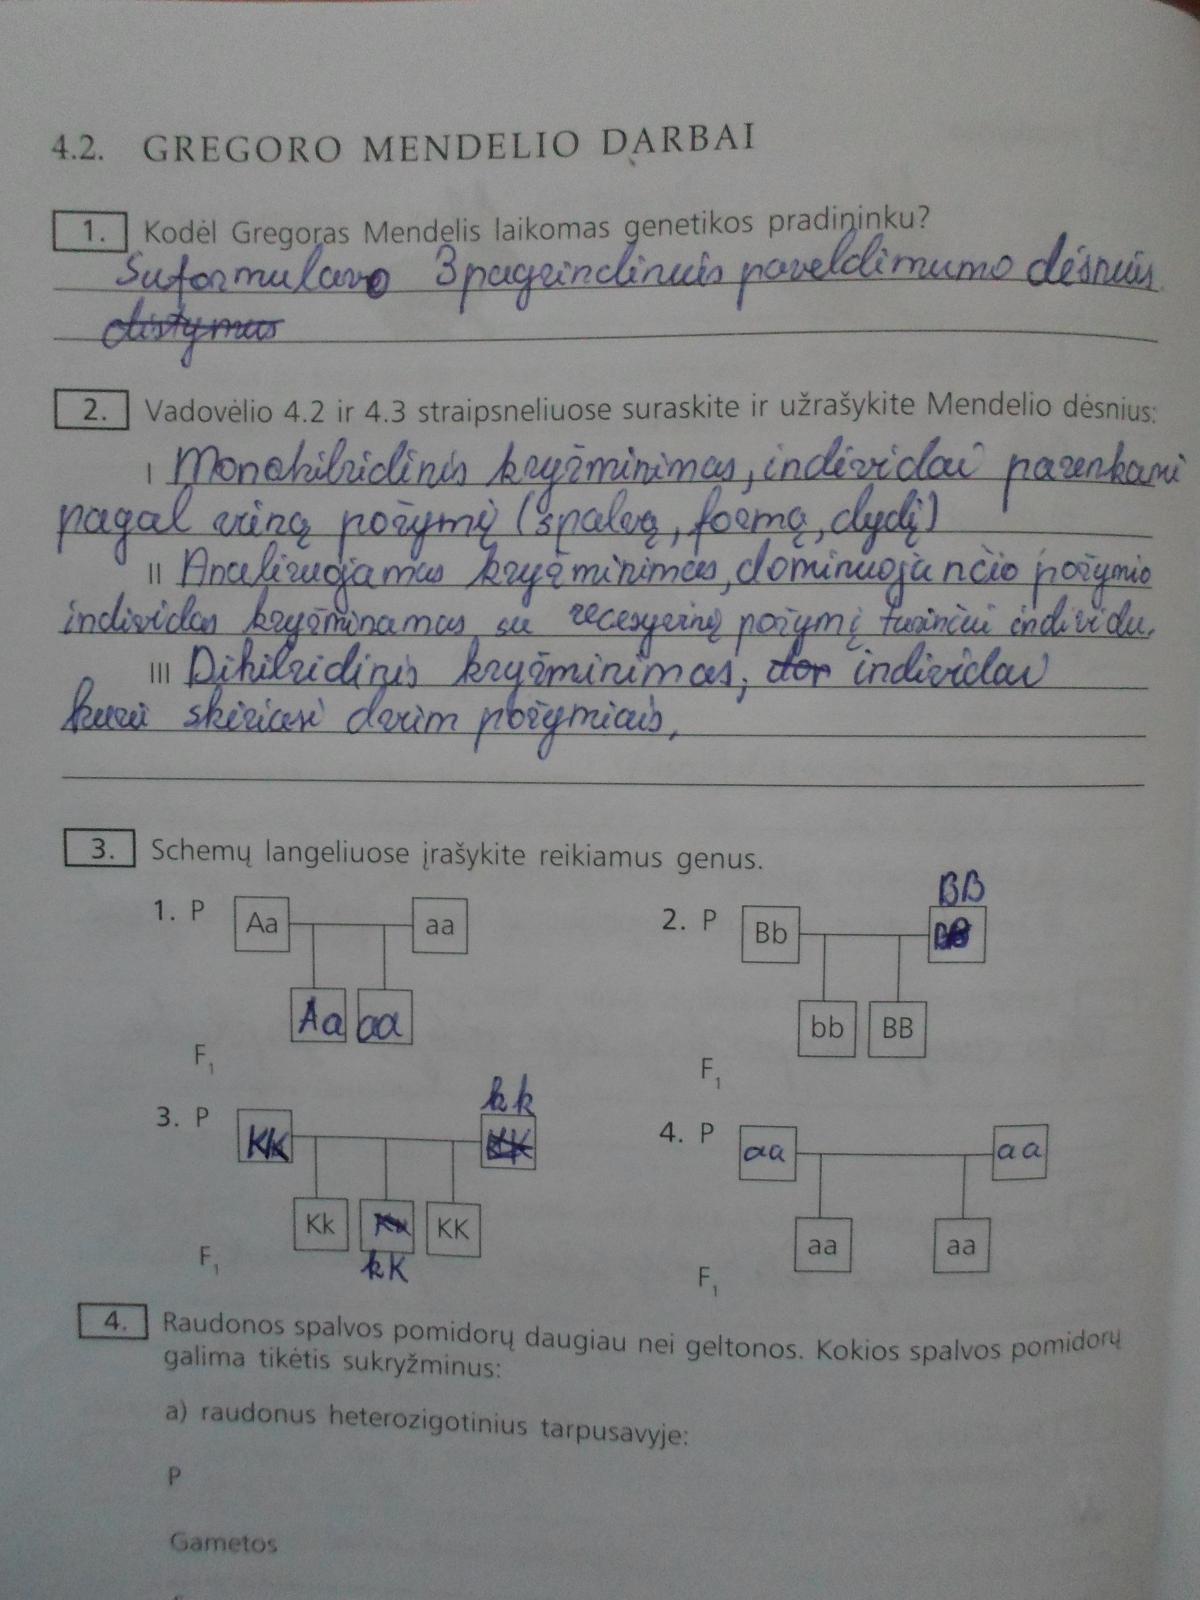 4.2. GREGORO MENDELIO DARBAI
1. Kodėl Gregoras Mendelis laikomas genetikos pradininku?
Suformulavo 3 pagrindinius paveldimumo dėsnius.
2. Vadovėlio 4.2 ir 4.3 straipsneliuose suraskite ir užrašykite Mendelio dėsnius:
I Monohibridinis kryžminimas, individai parenkami
pagal vieną požymį (spalvą, formą, dydį)
II Analizuojamas kryžminimas, dominuojančio požymio
individas kryžminamas su recesyvinį požymį turinčiu individu.
III Dihibridinis kryžminimas, individai
kurie skiriasi dviem požymiais,
3. Schemų langeliuose įrašykite reikiamus genus.
BB
1. P Aa aa 2. P Bb
Aa aa bb BB
F1 F1
kk
3. P KK 4. P aa aa
Kk KK aa aa
kK
F1 F1
4. Raudonos spalvos pomidorų daugiau nei geltonos. Kokios spalvos pomidorų
galima tikėtis sukryžminus:
a) raudonus heterozigotinius tarpusavyje:
P
Gametos